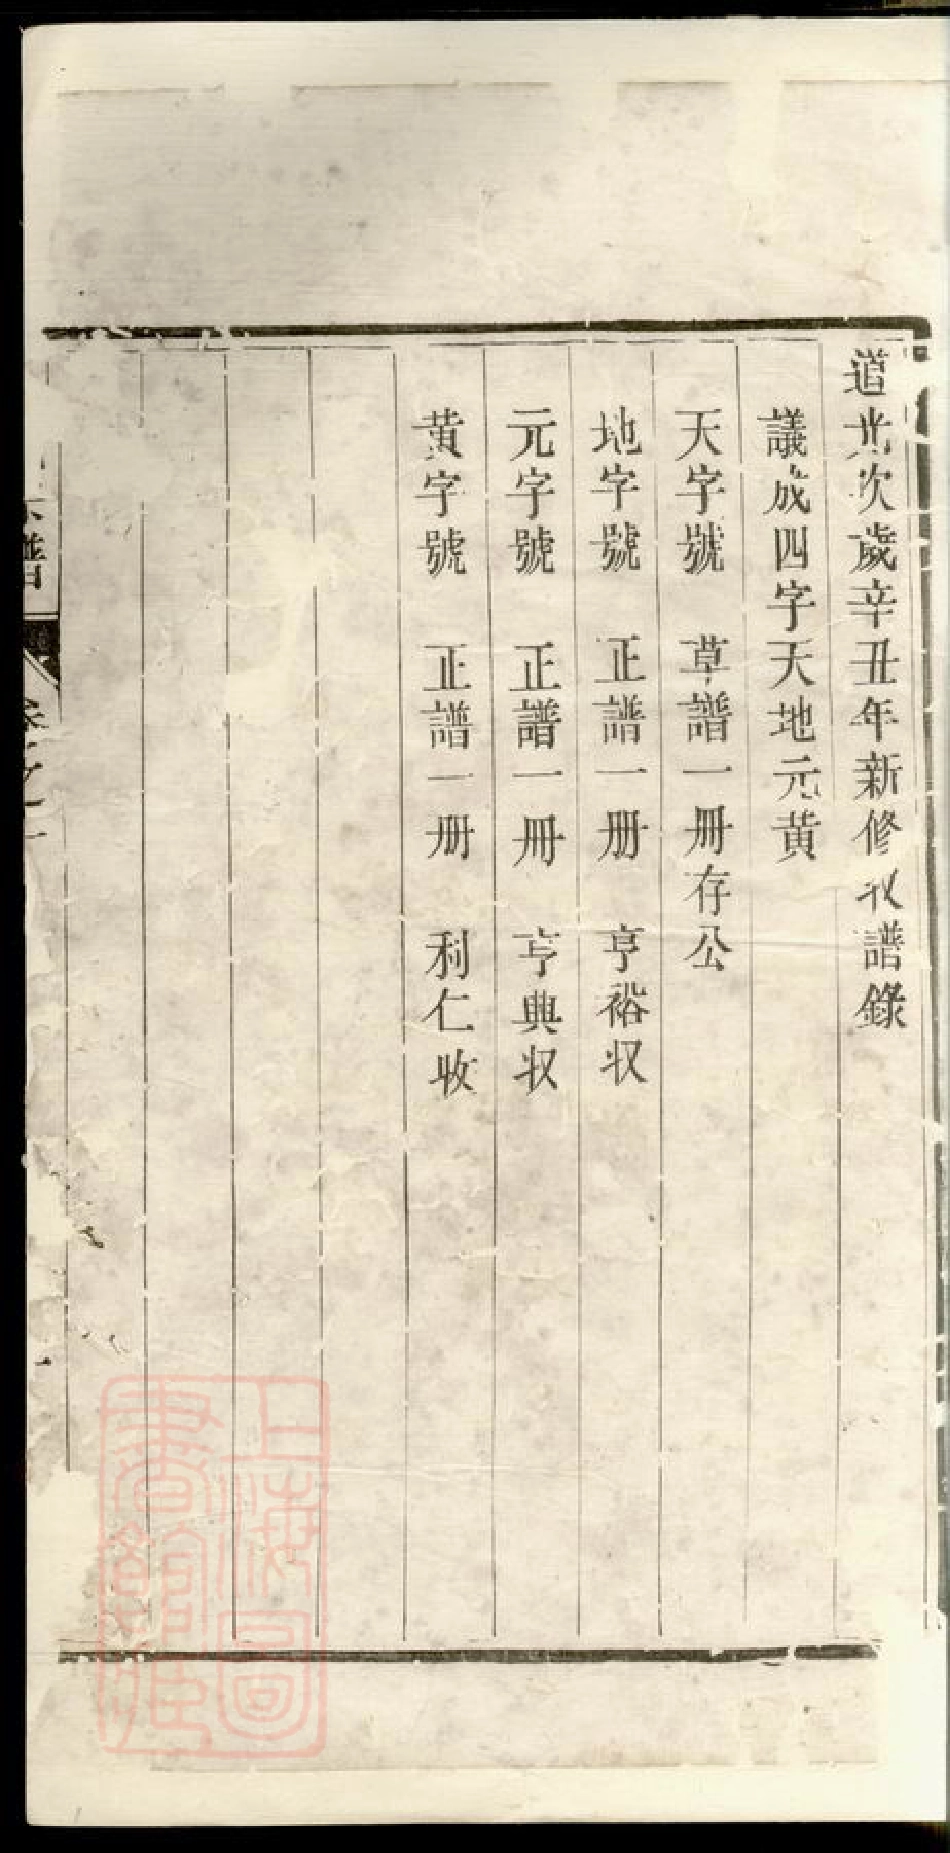 道光次歲辛丑年新修收譜錄
議成四字天地元黃
天字號　草譜一冊存公
地字號　正譜一册　亨裕収
元字號　正譜一冊　亨典収
黃字號　正譜一册　利仁收
譜
上海圖
書館藏